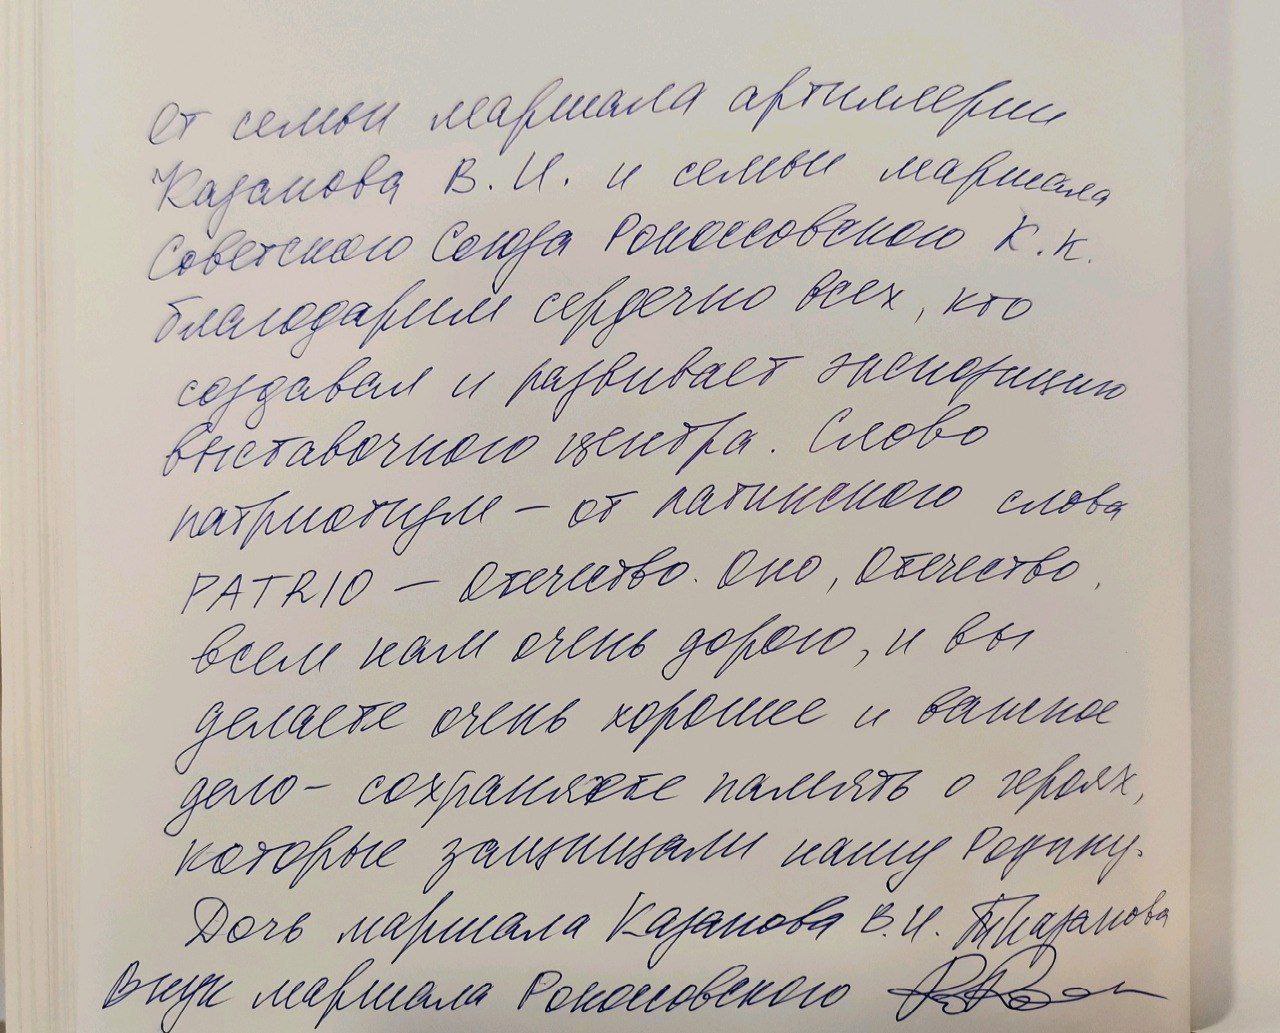 От семьи маршала артиллерии
Казакова В.И. и семьи маршала
Советского Союза Рокоссовского К.К.
благодарим сердечно всех, кто
создавал и развивает экспозицию
выставочного центра. Слово
патриотизм – от латинского слова
PATRIO – Отечество. Оно, Отечество,
всем нам очень дорого, и вы
делаете очень хорошее и важное
дело – сохраняете память о героях,
которые защищали нашу Родину.
Дочь маршала Казакова В.И. ТКазакова
Внук маршала Рокоссовского